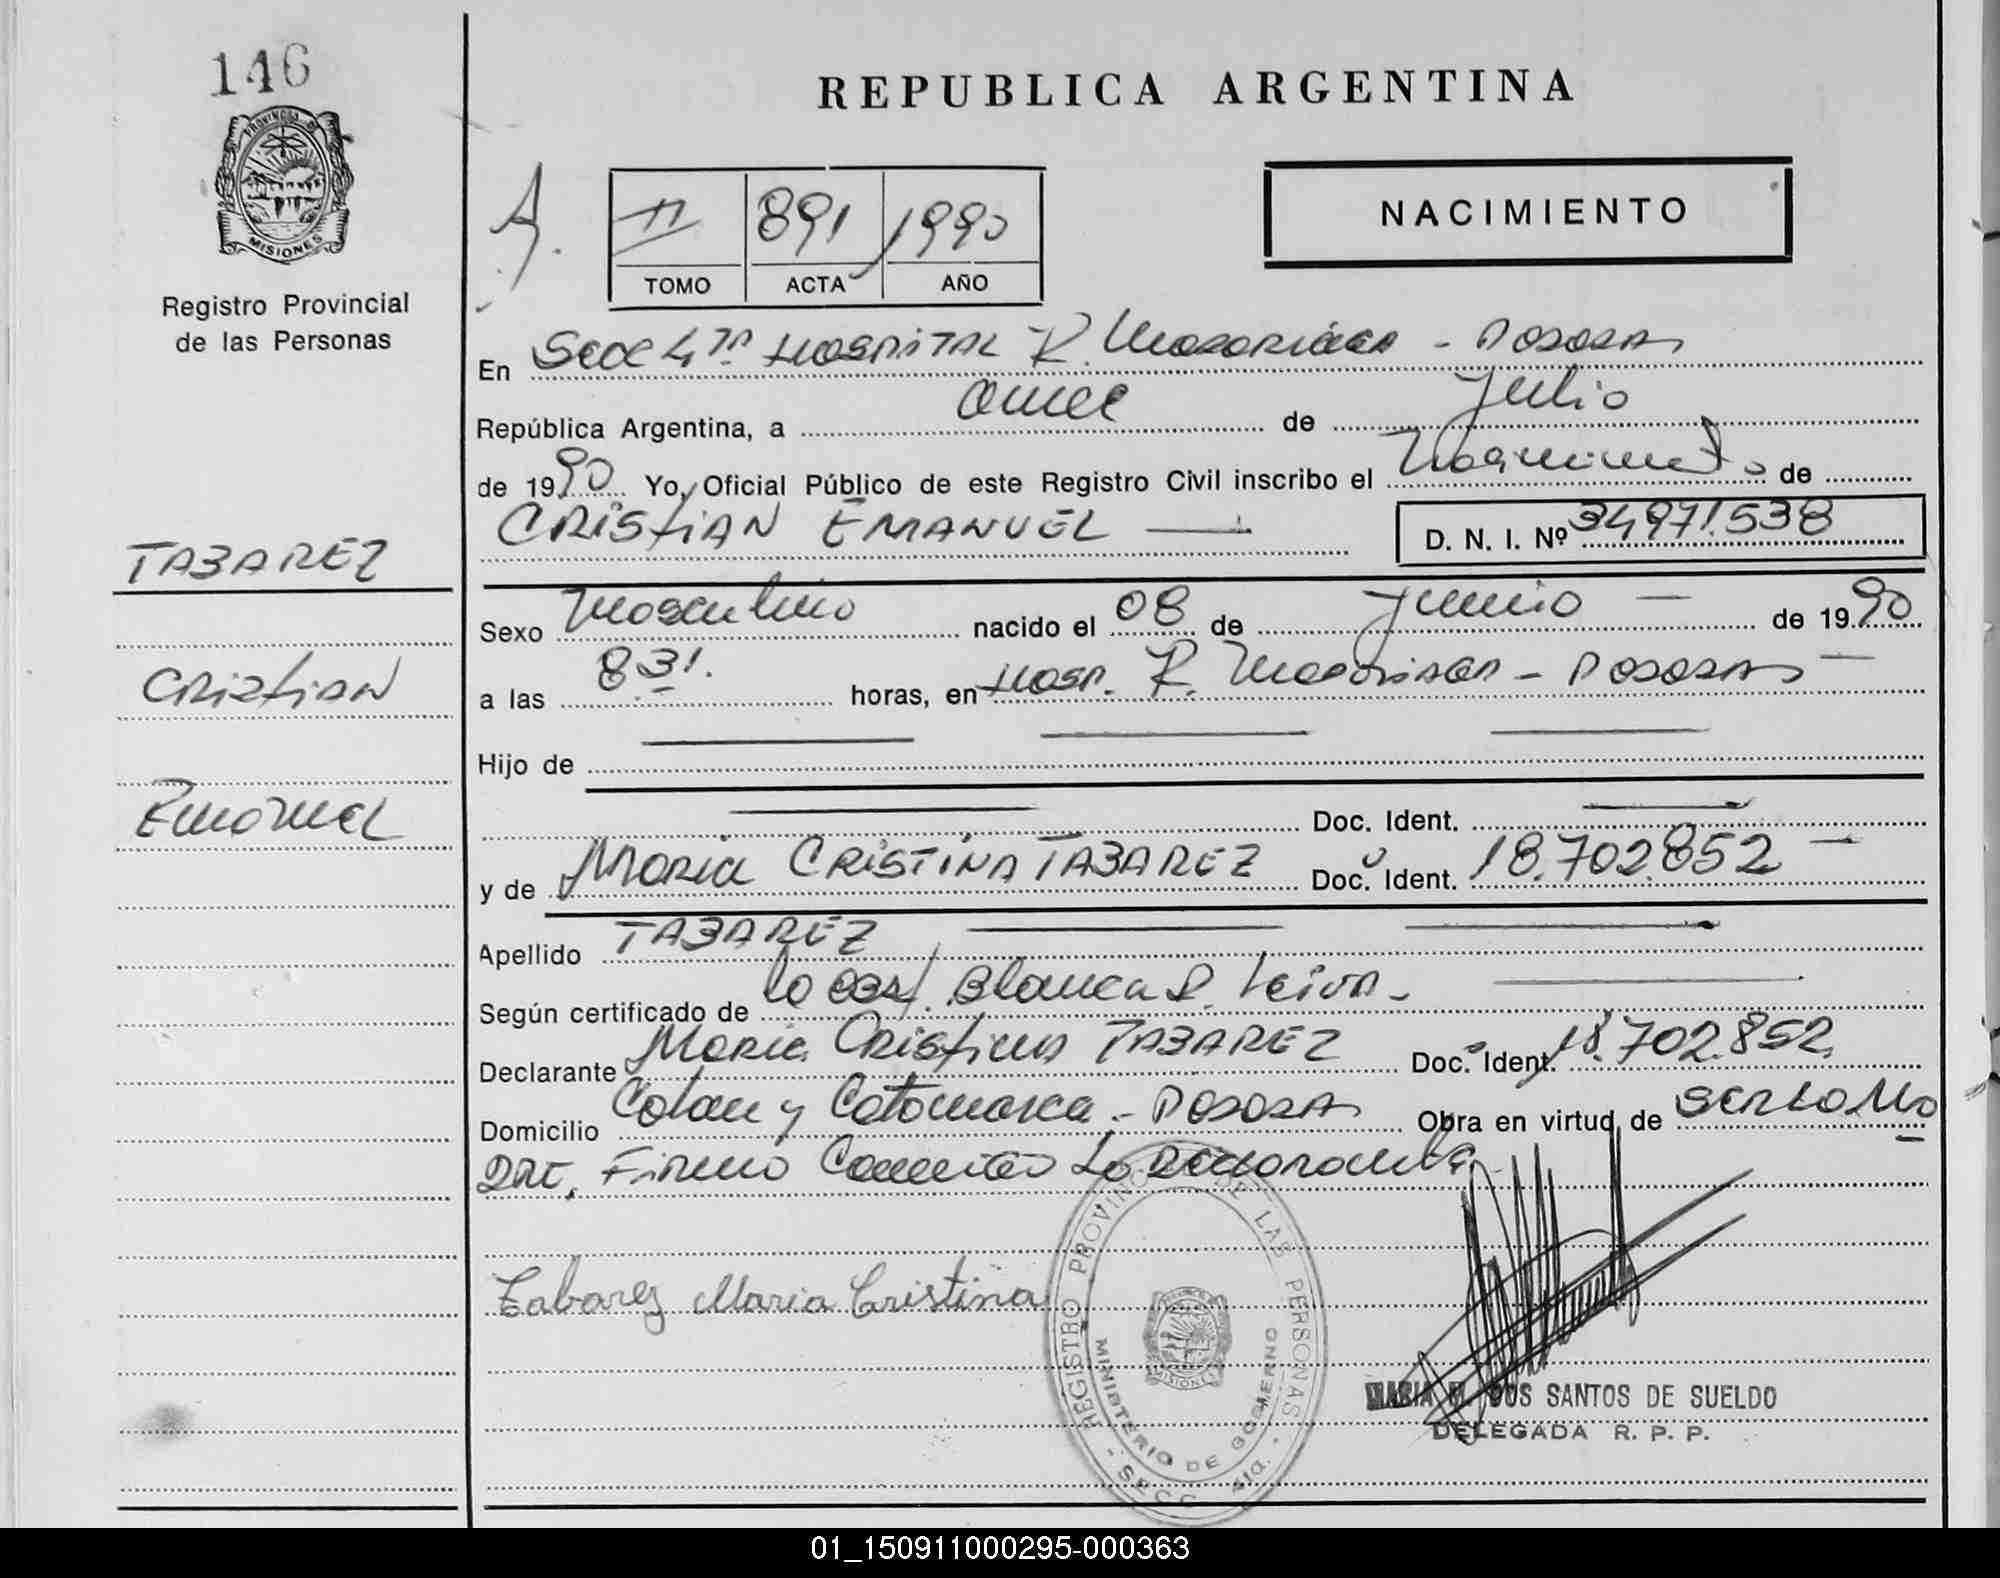 146
PROVINCIA DE
MISIONES
Registro Provincial
de las Personas
TABAREZ
Cristian
Emanuel
REPUBLICA ARGENTINA
II 891 1990
TOMO ACTA AÑO
NACIMIENTO
En Secc 4ta HOSPITAL R. Madariaga - Posadas
República Argentina, a once de Julio
de 1990 Yo, Oficial Público de este Registro Civil inscribo el Nacimiento de
CRISTIAN EMANUEL D. N. I. Nº 34971.538
Sexo Masculino nacido el 08 de Junio de 1990
a las 831. horas, en Hosp. R. Madariaga - Posadas
Hijo de
Doc. Ident.
y de Maria CRISTINA TABAREZ Doc. Ident. 18.702.852
Apellido TABAREZ
Según certificado de la obst. Blanca R. Leiva
Declarante Maria Cristina TABAREZ Doc. Ident. 18.702.852
Domicilio Colon y Catamarca - Posadas Obra en virtud de ser la Mo
Dre. Firma la Declarante
Tabarez Maria Cristina
REGISTRO PROVINCIAL DE LAS PERSONAS
MINISTERIO DE GOBIERNO
MISIONES
SECC. 4ta.
MARIA DOS SANTOS DE SUELDO
DELEGADA R. P. P.
01_150911000295-000363